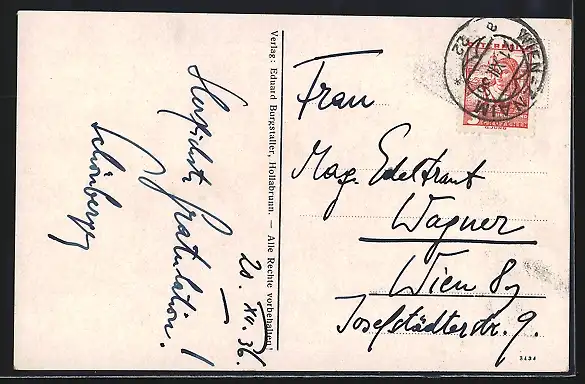 Herzlichste Gratulation!
Schönberger
20. XII. 36.
Verlag: Eduard Burgstaller, Hollabrunn. — Alle Rechte vorbehalten!
WIEN
22
ÖSTERREICH
GROSCHEN
Frau
Mag. Edeltraut
Wagner
Wien 8,
Josefstädterstr. 9.
3434